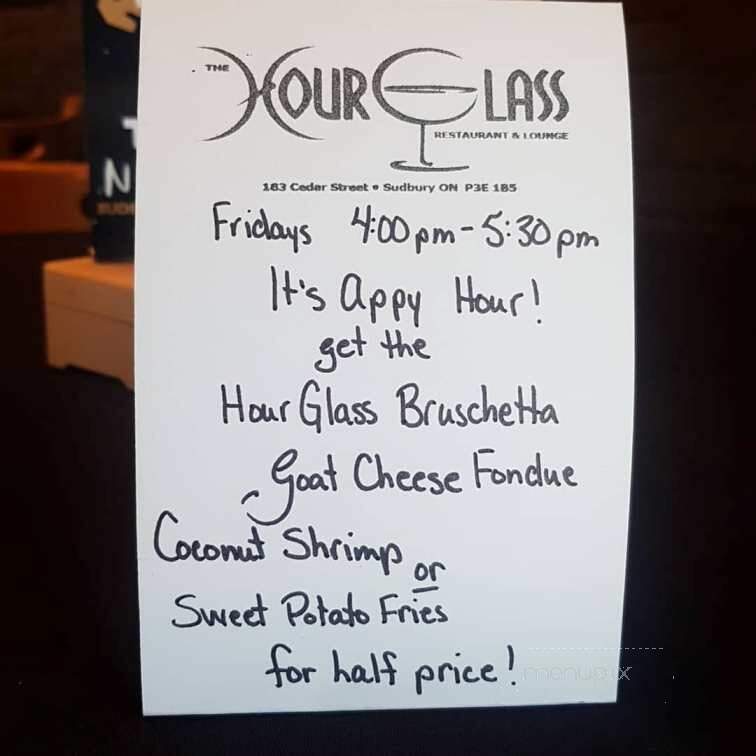 THE HOUR GLASS
RESTAURANT & LOUNGE
183 Cedar Street • Sudbury ON P3E 1B5
Fridays 4:00pm-5:30pm
It's Appy Hour!
get the
Hour Glass Bruschetta
Goat Cheese Fondue
Coconut Shrimp or
Sweet Potato Fries
for half price!
menupix